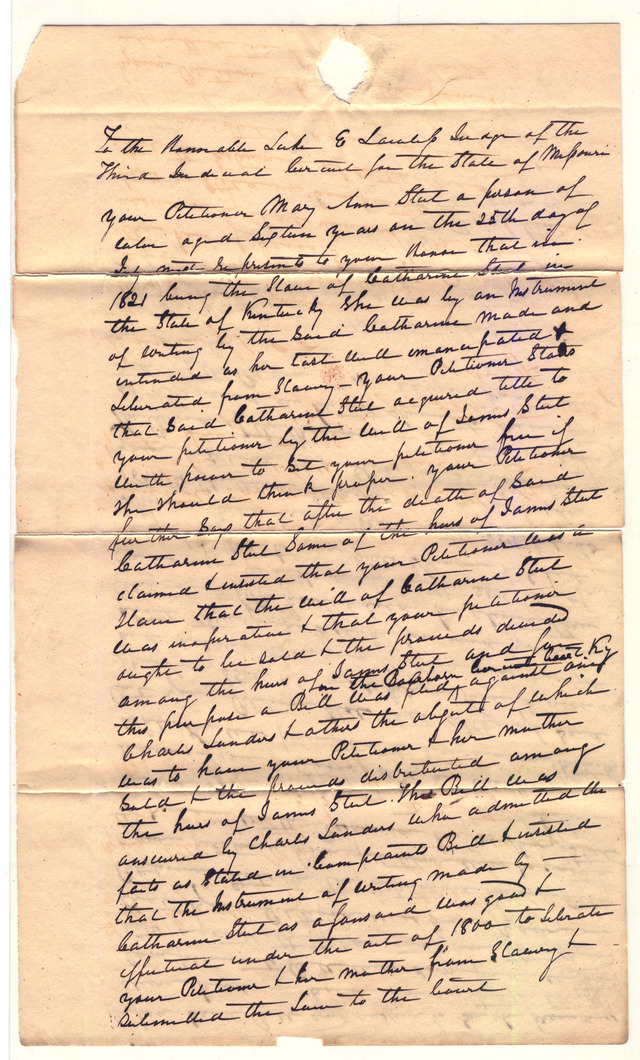 To the Honorable Luke E Lawless Judge of the
Third Judicial Circuit for the State of Missouri
Your Petitioner Mary Ann Steel a person of
color aged Sixteen years on the 25th day of
July next Represents to your Honor that in
1821 being the Slave of Catharine Steel in
the State of Kentucky She was by an Instrument
of writing by the Said Catharine made and
intended as her last will emancipated &
Liberated from Slavery – Your Petitioner States
that Said Catharine Steel acquired title to
your petitioner by the will of James Steel
with power to Set your petitioner free if
She Should think proper. Your Petitioner
further Says that after the death of Said
Catharine Steel Some of the heirs of James Steel
claimed & insisted that your Petitioner was a
Slave that the will of Catharine Steel
was inoperative & that your petitioner
ought to be Sold & the proceeds divided
among the heirs of James Steel and for
in the Bourbon County Court Ky
this purpose a Bill was filed against one
Charles Sanders & others the object of which
was to have your Petitioner & her mother
Sold & the proceeds distributed among
the heirs of James Steel. The Bill was
answered by Charles Sanders who admitted the
facts as Stated in Complaints Bill & insisted
that the Instrument of writing made by —
Catharine Steel as aforesaid was good &
effectual under the act of 1800 to liberate
your Petitioner & her mother from Slavery &
Submitted the Law to the Court